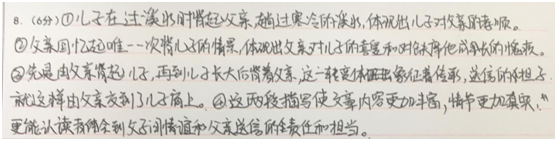 8. (6分) ①儿子在过溪水时背起父亲,趟过寒冷的溪水,体现出儿子对父亲的孝顺。
②父亲回忆起唯一一次背儿子的情景,体现出父亲对儿子的喜爱和对缺席他成长的愧疚。
③先是由父亲背起儿子,再到儿子长大后背着父亲,这一转变体现出象征着传承,送信的担子
就这样由父亲交到了儿子肩上。④这两段描写使文章内容更加丰富,情节更加真实,
更能让读者体会到父子间情谊和父亲送信的责任和担当。